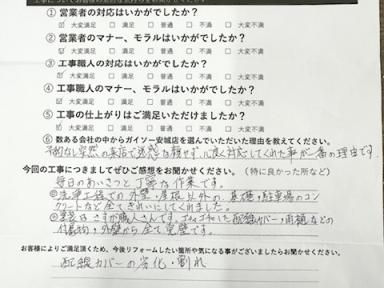 ① 営業者の対応はいかがでしたか?
☑ 大変満足 □ 満足 □ 普通 □ 不満 □ 大変不満
② 営業者のマナー、モラルはいかがでしたか?
☑ 大変満足 □ 満足 □ 普通 □ 不満 □ 大変不満
③ 工事職人の対応はいかがでしたか?
☑ 大変満足 □ 満足 □ 普通 □ 不満 □ 大変不満
④ 工事職人のマナー、モラルはいかがでしたか?
☑ 大変満足 □ 満足 □ 普通 □ 不満 □ 大変不満
⑤ 工事の仕上がりはご満足いただけましたか?
☑ 大変満足 □ 満足 □ 普通 □ 不満 □ 大変不満
⑥ 数ある会社の中からガイソー安城店を選んでいただいた理由を教えてください。
予約なし突然の来店で迷惑な顔せず、心良く対応してくれた事が一番の理由です。
今回の工事につきましてぜひご感想をお聞かせください。(特に良かった所など)
毎日のあいさつと丁寧な作業です。
洗浄工程での外壁・屋根以外の基礎・駐車場のコン
クリートなど全てきれいにしてくれました。
塗装はさすが職人さんです。配線カバー・雨樋などの
付属物・外壁から全て完璧です。
お客様によりご満足頂くため、今後リフォームしたい箇所や気になる事がございましたらお聞かせください。
配線カバーの劣化・割れ